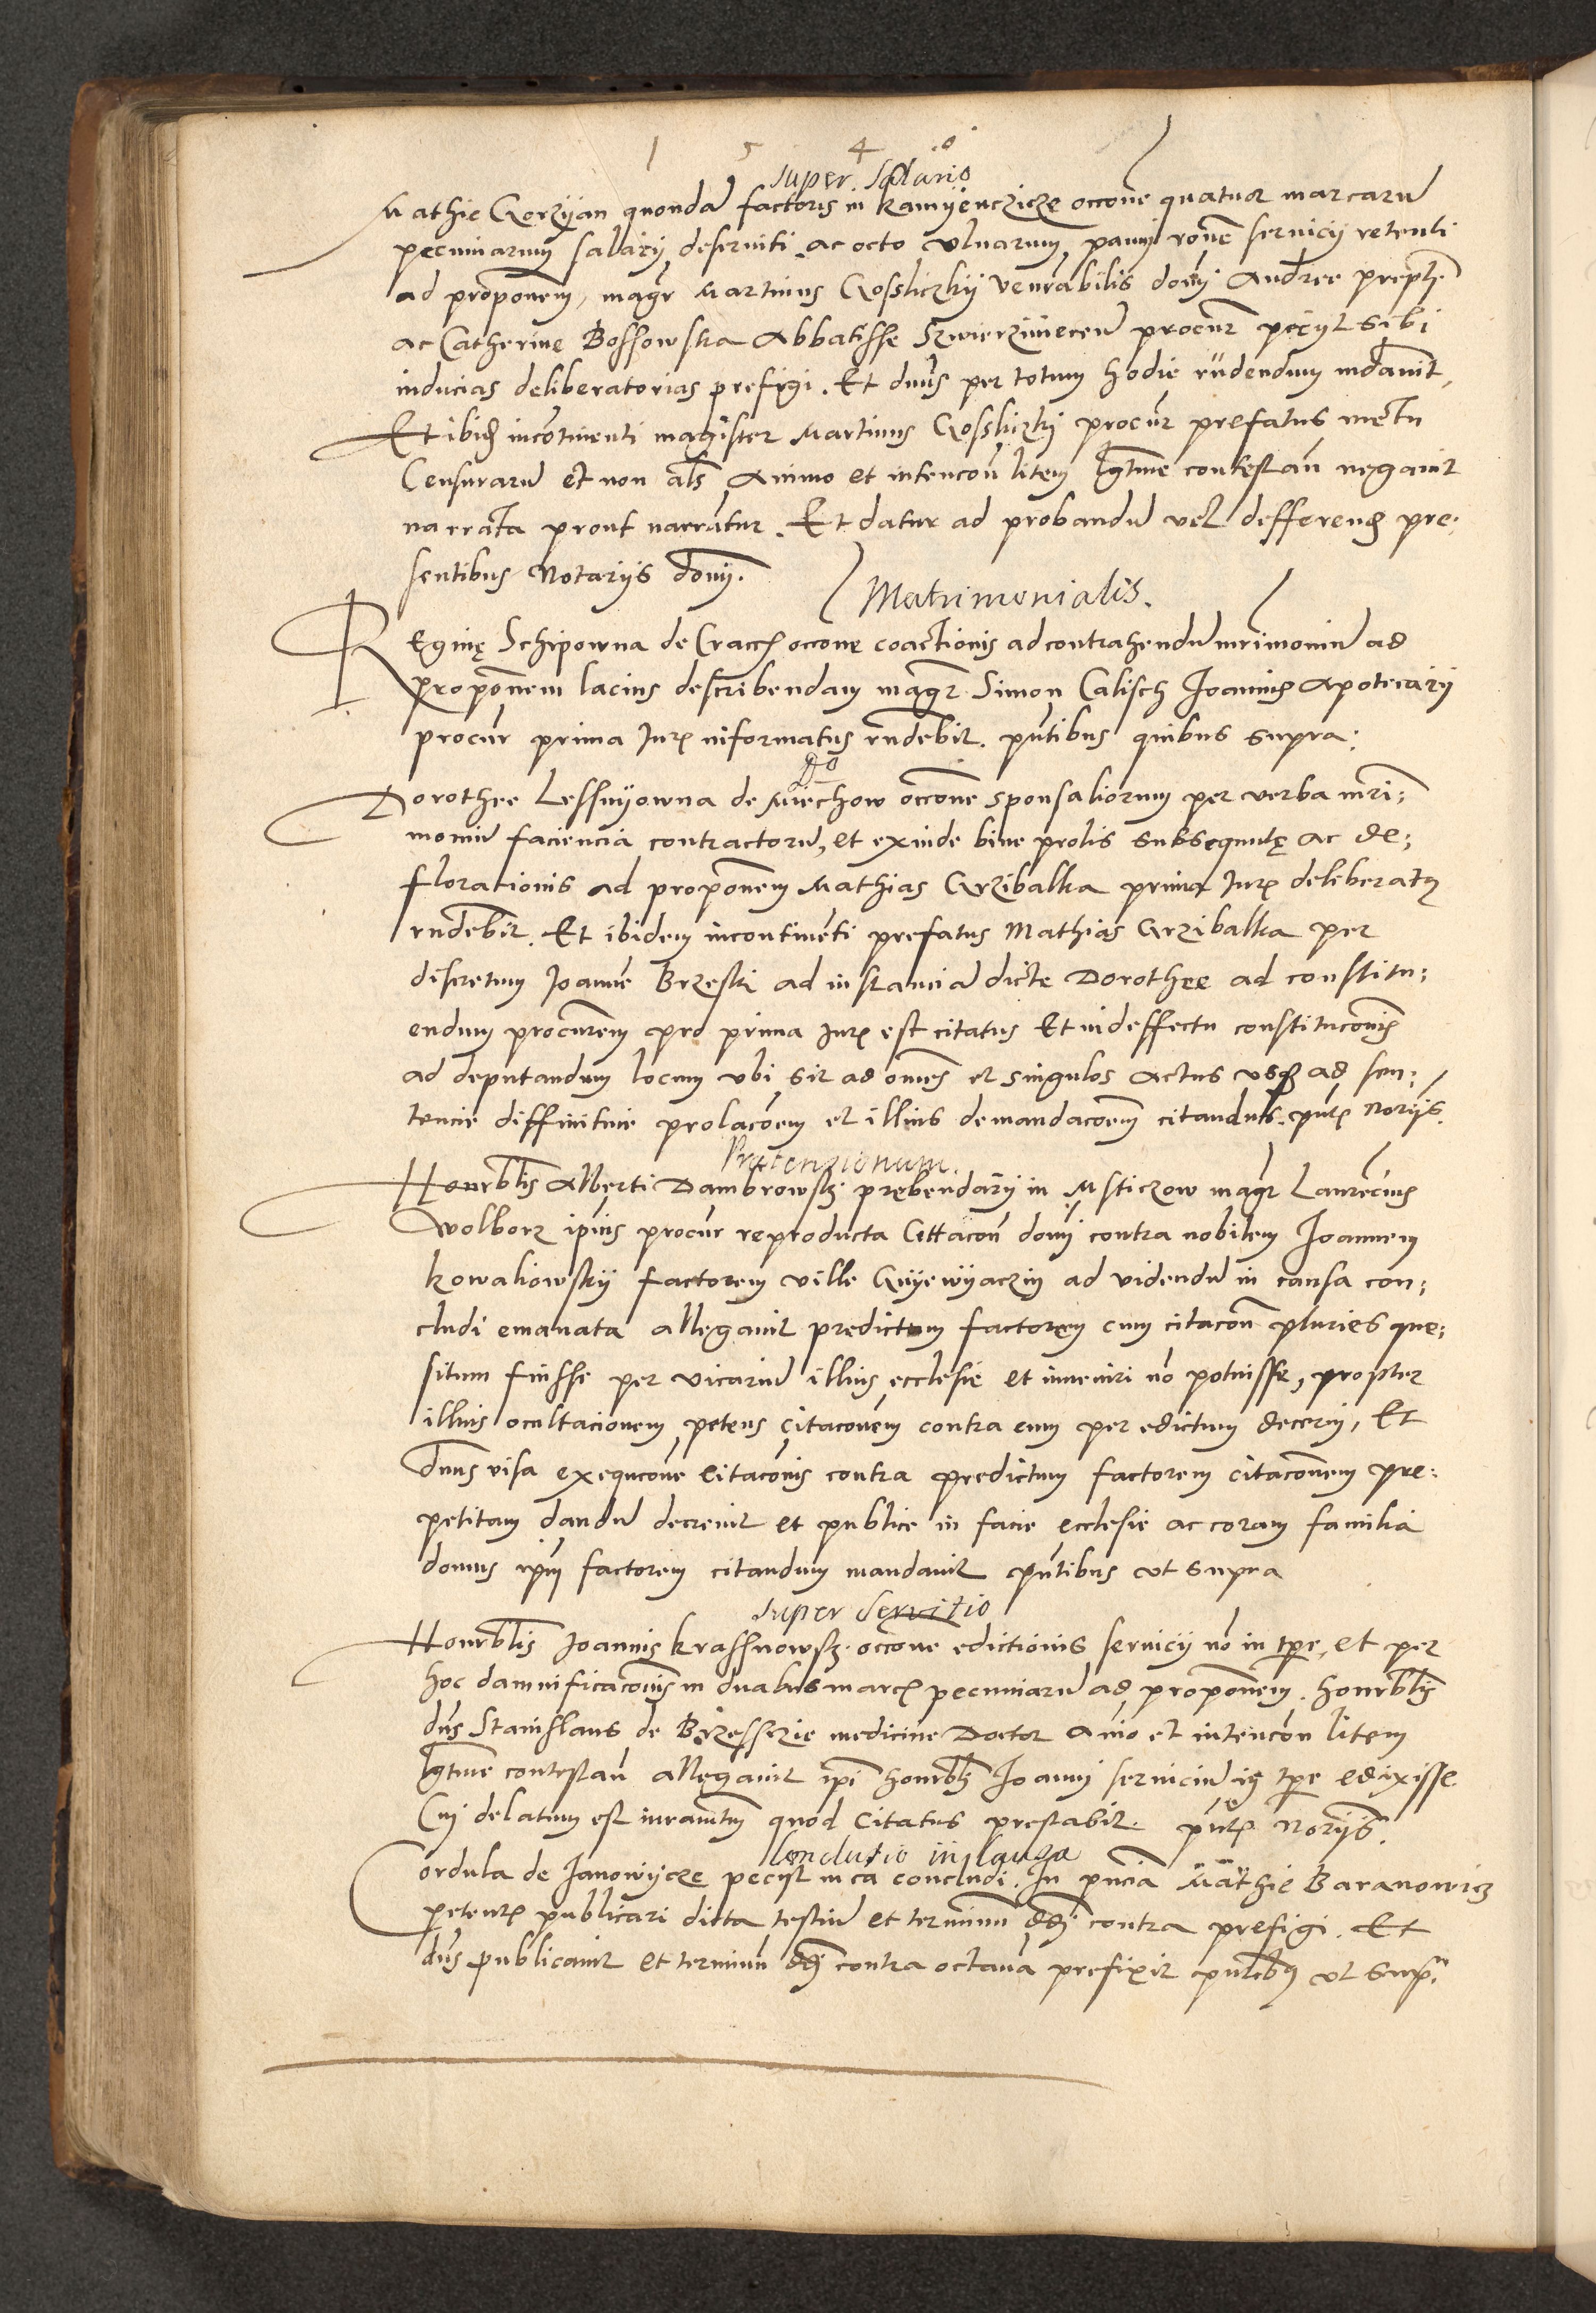 1 5 4 0
Super Salario
Mathie Gorzyan quondā factoris in Kamyenczicze occōne quatuor marcarū
pecuniarum salarij deserviti ac octo vlnarum panni rōne servicij retenti
ad propōnem, magr Martinus Gosliczkij venrabilis domi Andree preptē
ac Catherine Bossowska Abbatisse Swierzinecen procur peciyt sibi
inducias deliberatorias prefigi. Et dnus per totum hodie rndendum mdavit,
Et ibidē incontinenti magister Martinus Gosliczkj procur prefatus metu
Censurarū et non als Animo et intencōn litem lgtme contestan negavit
narrata prout narrātur. Et datur ad probandū vel defferend pre:
sentibus Notarijs domj.
Matrimonialis.
Reginę Schipowna de Craco occone coactionis ad contrahendū mrimoniū ad
propōnem lacius describendam magr Simon Calisch Joannis Apotecarij
procur prima Juris informatus rndebit. pntibus quibus supra:
Do
Dorothee Lessnyowna de Miechow occōne sponsaliorum per verba mri:
moniū faciencia contractorū, et exinde bine prolis subsequutę ac de:
florationis ad propōnem Mathias Grzibalka prima Juris deliberatus
rndebit. Et ibidem incontinēti prefatus Mathias Grzibalka per
discretum Joannē Brzeski ad instanciā dicte Dorothee ad constitu:
endum procurem pro prima Juris est citatus Et in deffectu constitucōnis
ad deputandum locum vbi sit ad omēs et singulos actus vsqꝫ ad sen:
tencie diffinitive prolacōem et illius demandacōem citandus. pntē Norijs.
Prætensionum.
Honrblis Alberti Dambrowskj prębendarij in Msticzow magr Laurēcius
Wolborz ipius procur reproducta Cittacōn domj contra nobilem Joannem
Kowaliowskij factorem ville Gnyewyaczin ad videndū in causa con:
cludi emanata allegavit predictum factorem cum citacōn pluries que:
situm fuisse per vicariū illius ecclesie et inveniri nō potuisse, propter
illius ocultacionem petens citacōnem contra eum per edictum decerni, Et
dnus visa exequcōne citacōnis contra predictum factorem citacōnem pre:
petitam dandū decrevit et publice in facie ecclesie ac coram familia
domus ipm factorem citandum mandavit pntibus vt supra
Super Servitio
Honrblis Joannis Krassnowskj occōne edictionis servicij nō in tpre, et per
hoc damnificacōnis in duabus marcis pecuniarū ad propōnem. honrblis
dns Stanislaus de Brzesczie medicine Doctor Animo et intencōn litem
lgtme contestan allegavit ipi honrbli Joanni serviciū in tpre edixisse
Cuj delatum est iuramtum quod citatus prestabit. pntē Norijs.
Conclusio in Causa
Cordula de Janowycze peciyt in ca concludi. In pncia Mathie Baranowicz
petentis publicari dicta testiū et terminum contra prefigi. Et
dns publicavit et terminū contra octavā prefixit pntibus vt supra